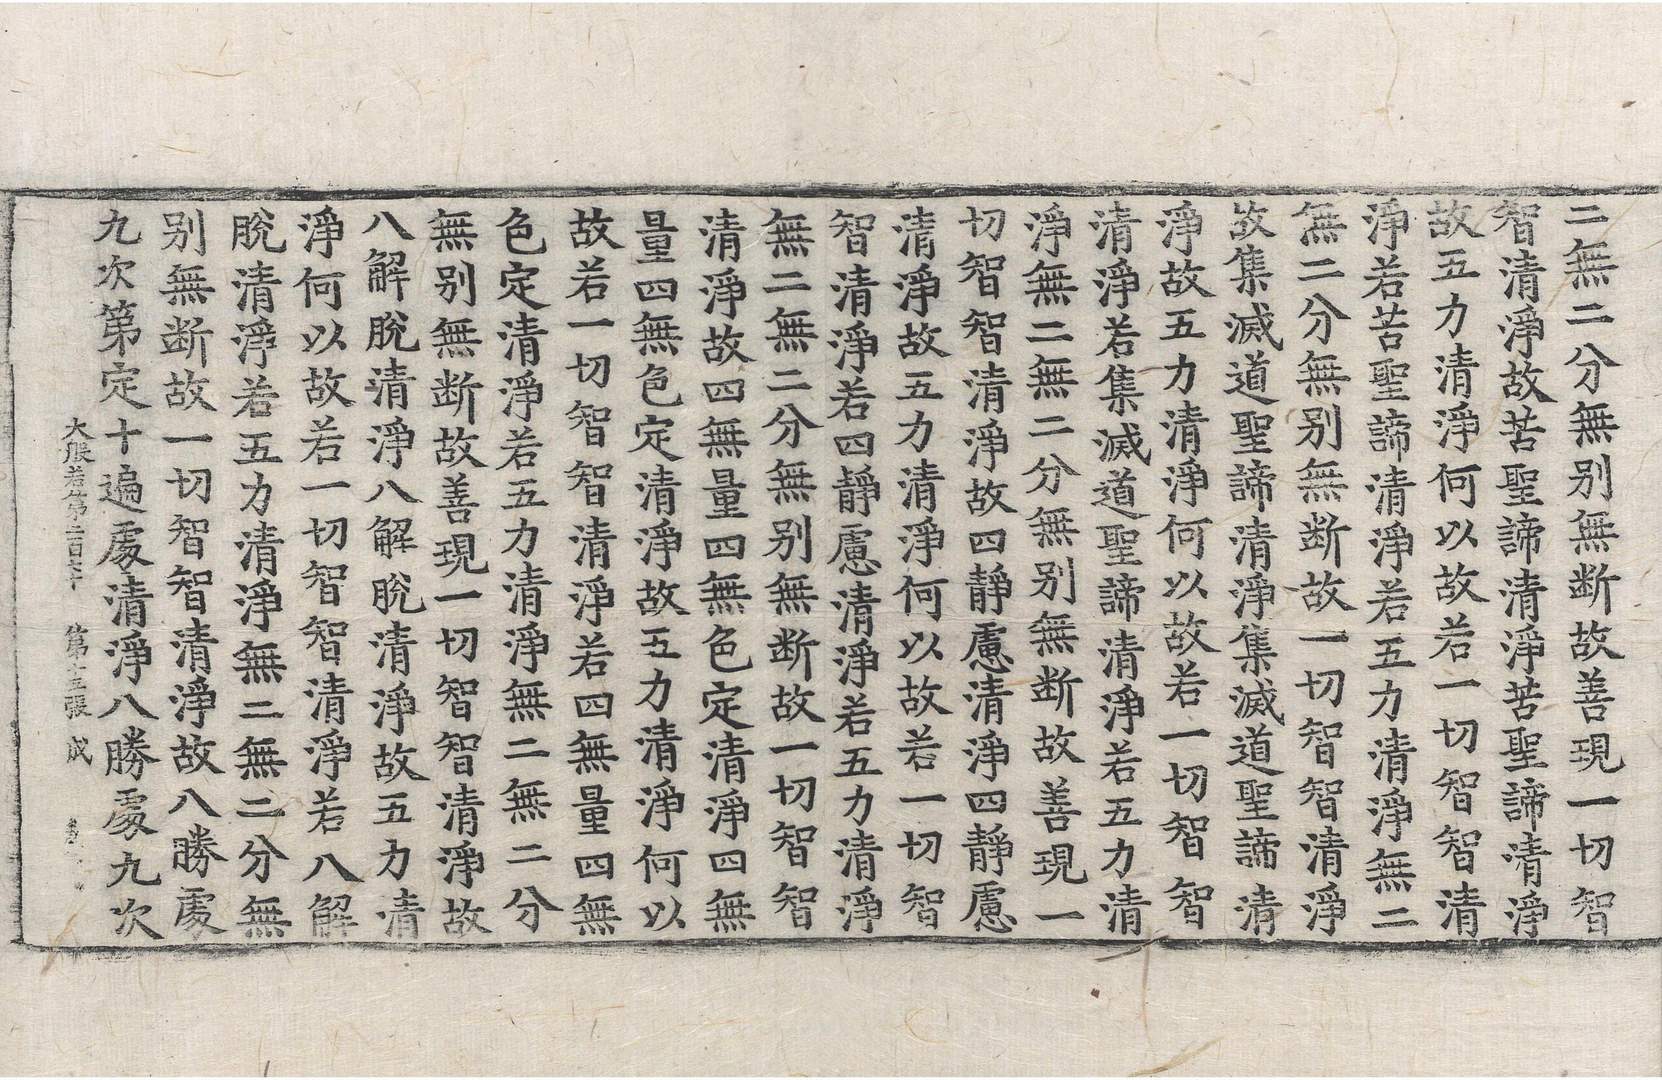 二無二分無别無断故善現一切智
智清淨故苦聖諦清淨苦聖諦清淨
故五力清淨何以故若一切智智清
淨若苦聖諦清淨若五力清淨無二
無二分無别無断故一切智智清淨
故集滅道聖諦清淨集滅道聖諦清
淨故五力清淨何以故若一切智智
清淨若集滅道聖諦清淨若五力清
淨無二無二分無别無断故善現一
切智智清淨故四靜慮清淨四靜慮
清淨故五力清淨何以故若一切智
智清淨若四靜慮清淨若五力清淨
無二無二分無别無断故一切智智
清淨故四無量四無色定清淨四無
量四無色定清淨故五力清淨何以
故若一切智智清淨若四無量四無
色定清淨若五力清淨無二無二分
無别無断故善現一切智智清淨故
八解脫清淨八解脫清淨故五力清
淨何以故若一切智智清淨若八解
脫清淨若五力清淨無二無二分無
别無断故一切智智清淨故八勝處
九次第定十遍處清淨八勝處九次
大般若第二百六十 第十三張 成